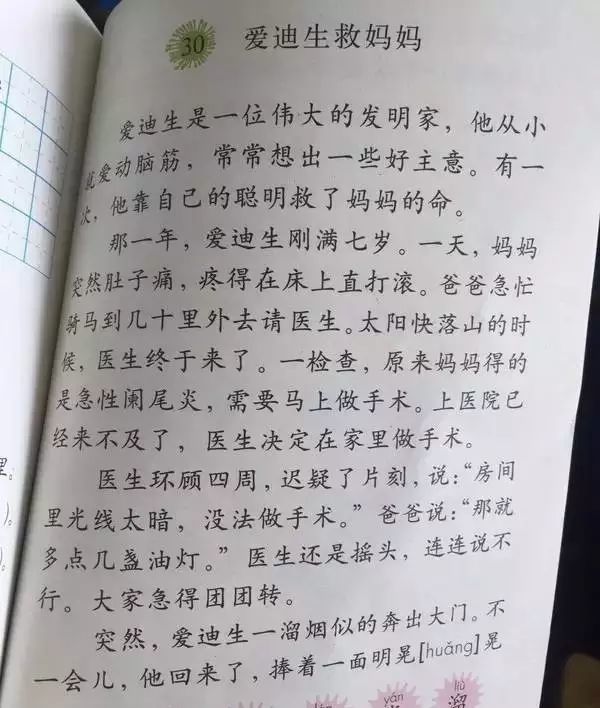 30 爱迪生救妈妈
爱迪生是一位伟大的发明家，他从小
就爱动脑筋，常常想出一些好主意。有一
次，他靠自己的聪明救了妈妈的命。
那一年，爱迪生刚满七岁。一天，妈妈
突然肚子痛，疼得在床上直打滚。爸爸急忙
骑马到几十里外去请医生。太阳快落山的时
候，医生终于来了。一检查，原来妈妈得的
是急性阑尾炎，需要马上做手术。上医院已
经来不及了，医生决定在家里做手术。
医生环顾四周，迟疑了片刻，说：“房间
里光线太暗，没法做手术。”爸爸说：“那就
多点几盏油灯。”医生还是摇头，连连说不
行。大家急得团团转。
突然，爱迪生一溜烟似的奔出大门。不
一会儿，他回来了，捧着一面明晃[huǎng]晃
yán liū
溜